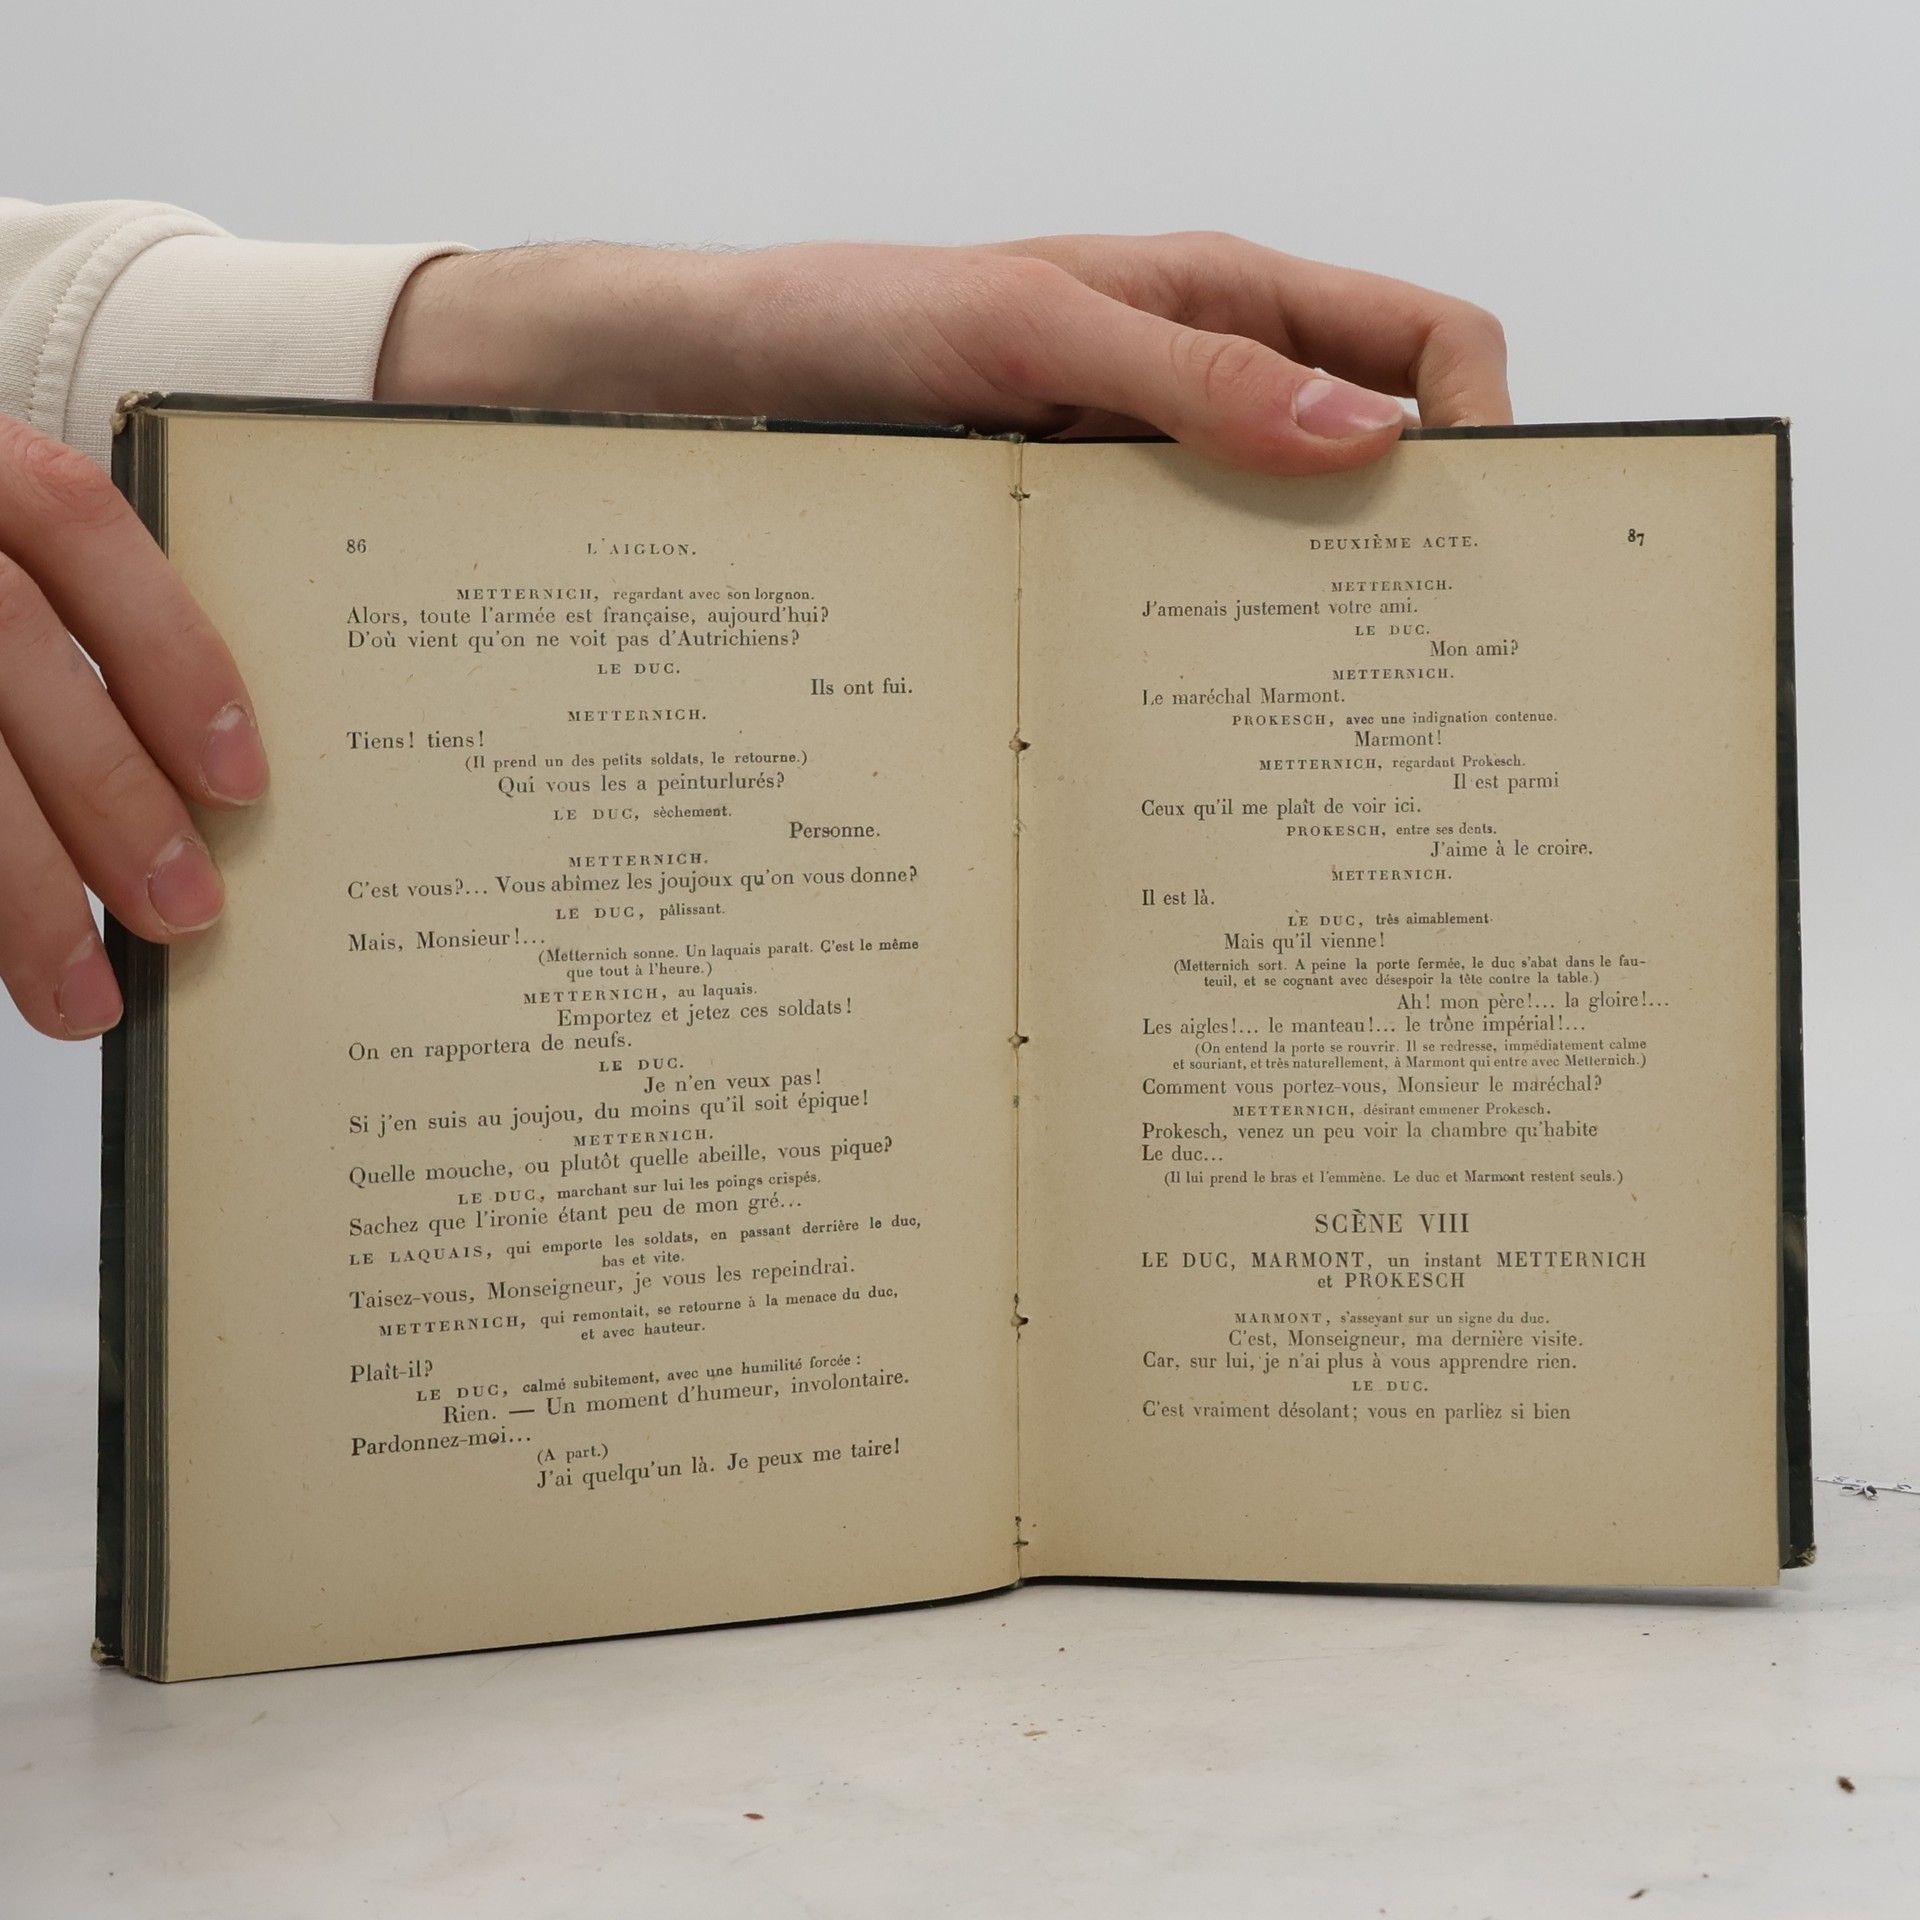 86
L'AIGLON.
METTERNICH, regardant avec son lorgnon.
Alors, toute l'armée est française, aujourd'hui?
D'où vient qu'on ne voit pas d'Autrichiens?
LE DUC.
Ils ont fui.
METTERNICH.
Tiens! tiens!
(Il prend un des petits soldats, le retourne.)
Qui vous les a peinturlurés?
LE DUC, sèchement.
Personne.
METTERNICH.
C'est vous?... Vous abîmez les joujoux qu'on vous donne?
LE DUC, pâlissant.
Mais, Monsieur!...
(Metternich sonne. Un laquais paraît. C'est le même
que tout à l'heure.)
METTERNICH, au laquais.
Emportez et jetez ces soldats!
On en rapportera de neufs.
LE DUC.
Je n'en veux pas!
Si j'en suis au joujou, du moins qu'il soit épique!
METTERNICH.
Quelle mouche, ou plutôt quelle abeille, vous pique?
LE DUC, marchant sur lui les poings crispés.
Sachez que l'ironie étant peu de mon gré...
LE LAQUAIS, qui emporte les soldats, en passant derrière le duc,
bas et vite.
Taisez-vous, Monseigneur, je vous les repeindrai.
METTERNICH, qui remontait, se retourne à la menace du duc,
et avec hauteur.
Plaît-il?
LE DUC, calmé subitement, avec une humilité forcée :
Rien. — Un moment d'humeur, involontaire.
Pardonnez-moi...
(A part.)
J'ai quelqu'un là. Je peux me taire!
DEUXIÈME ACTE.
87
METTERNICH.
J'amenais justement votre ami.
LE DUC.
Mon ami?
METTERNICH.
Le maréchal Marmont.
PROKESCH, avec une indignation contenue.
Marmont!
METTERNICH, regardant Prokesch.
Il est parmi
Ceux qu'il me plaît de voir ici.
PROKESCH, entre ses dents.
J'aime à le croire.
METTERNICH.
Il est là.
LE DUC, très aimablement.
Mais qu'il vienne!
(Metternich sort. A peine la porte fermée, le duc s'abat dans le fau-
teuil, et se cognant avec désespoir la tête contre la table.)
Ah! mon père!... la gloire!...
Les aigles!... le manteau!... le trône impérial!...
(On entend la porte se rouvrir. Il se redresse, immédiatement calme
et souriant, et très naturellement, à Marmont qui entre avec Metternich.)
Comment vous portez-vous, Monsieur le maréchal?
METTERNICH, désirant emmener Prokesch.
Prokesch, venez un peu voir la chambre qu'habite
Le duc...
(Il lui prend le bras et l'emmène. Le duc et Marmont restent seuls.)
SCÈNE VIII
LE DUC, MARMONT, un instant METTERNICH
et PROKESCH
MARMONT, s'asseyant sur un signe du duc.
C'est, Monseigneur, ma dernière visite.
Car, sur lui, je n'ai plus à vous apprendre rien.
LE DUC.
C'est vraiment désolant; vous en parliez si bien